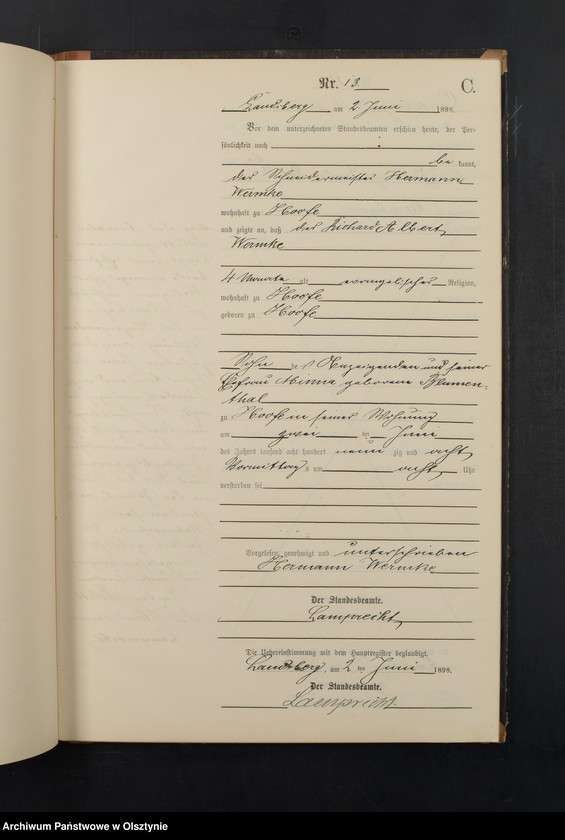 Nr. 13.
C.
Landsberg am 2 Juni 1898.
Vor dem unterzeichneten Standesbeamten erschien heute, der Per-
sönlichkeit nach
be kannt,
der Schneidermeister Hermann
Wermke
wohnhaft zu Hoofe
und zeigte an, daß der Richard Albert
Wermke
4 Monate alt evangelischer Religion,
wohnhaft zu Hoofe
geboren zu Hoofe
Sohn des Anzeigenden und seiner
Ehefrau Minna geborene Blumen-
thal
zu Hoofe in seiner Wohnung
am zwei ten Juni
des Jahres tausend acht hundert neun zig und acht
Vormittags um acht Uhr
verstorben sei
Vorgelesen, genehmigt und unterschrieben
Hermann Wermke
Der Standesbeamte.
Lamprecht
Die Uebereinstimmung mit dem Hauptregister beglaubigt.
Landsberg, am 2 ten Juni 1898.
Der Standesbeamte.
Lamprecht.
Archiwum Państwowe w Olsztynie